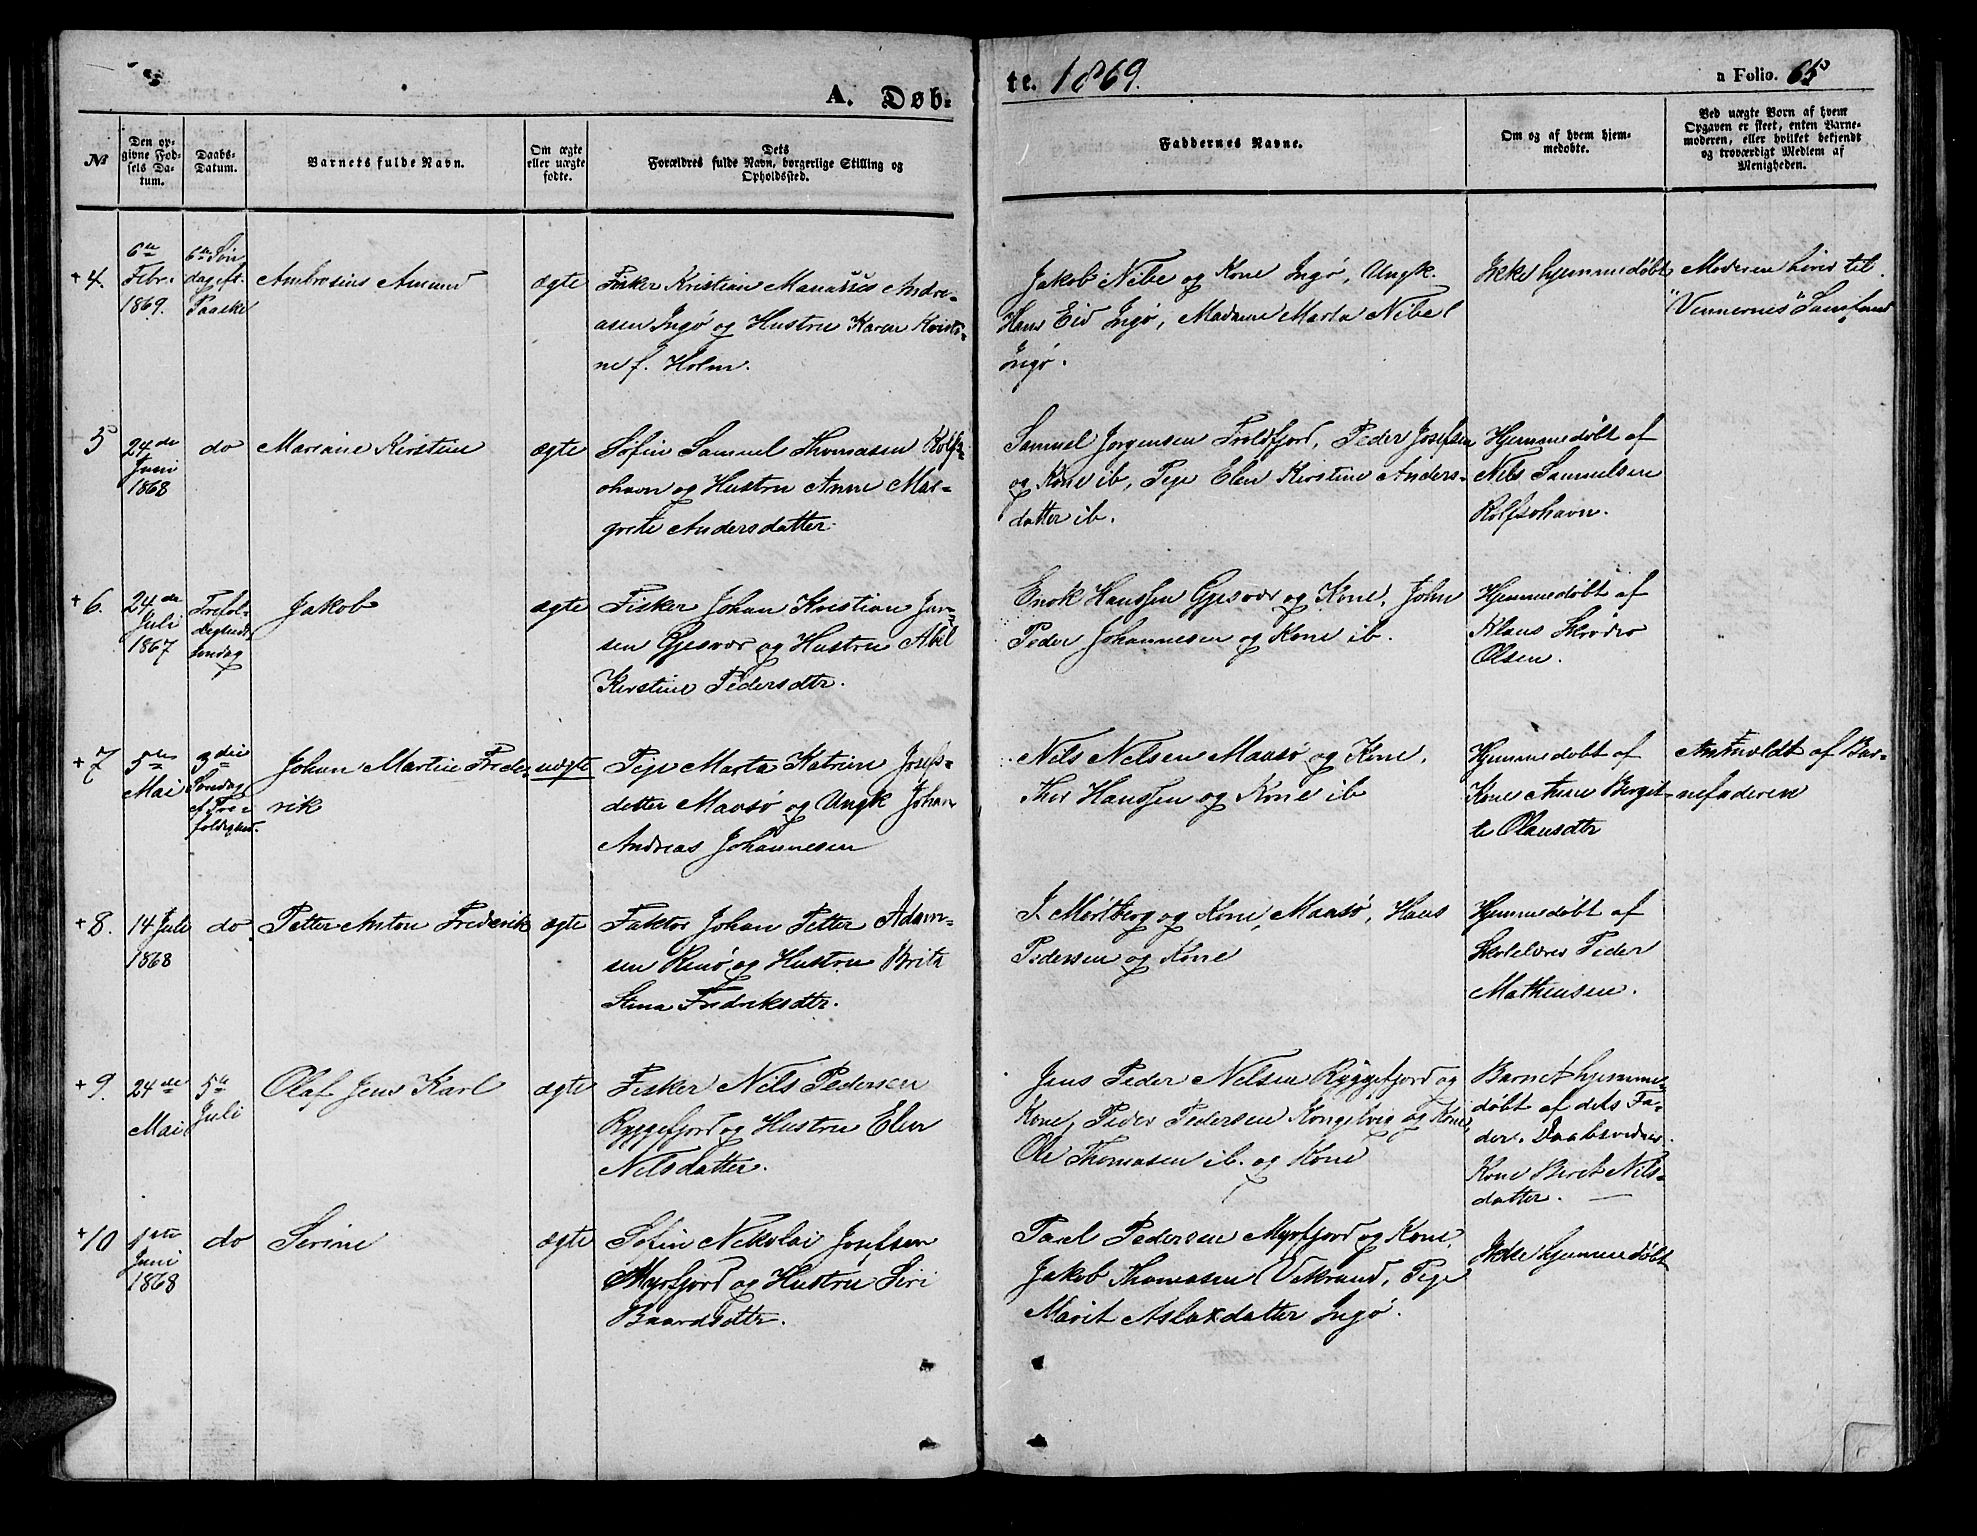 A. Døbte. 1869.
a Folio. 65
№
Den opgivne Fødsels Datum.
Daabs-Datum.
Barnets fulde Navn.
Om ægte eller uægte fødte.
Dets Forældres fulde Navn, borgerlige Stilling og Opholdssted.
Faddernes Navne.
Om og af hvem hjemmedøbte.
Ved uægte Børn af hvem Opgaven er skeet, enten Barnemoderen, eller hvilket bekjendt og troværdigt Medlem af Menigheden.
+4.
6te
Febr.
1869.
6te Søn
dag eft.
Paaske
Ambrosius Amund
ægte
Fisker Kristian Manasses Andre-
asen Ingø og Hustru Karen Kristi-
ne f. Holm.
Jakob Nibe og Kone Ingø, Ungk.
Hans Eid Ingø, Madame Marta Nibe
Ingø.
Ikke hjemmedøbt
Moderen hører til
"Vennernes" Samfund
5
24de
Juni
1868
do
Mariane Kirstine
ægte
Søfin Samuel Thomasen Rolfs-
ohavn og Hustru Anne Mar-
grete Andersdatter.
Samuel Jørgensen Troldfjord, Peder Josefsen
og Kone ib, Pige Elen Kirstine Anders-
datter ib.
Hjemmedøbt af
Nils Samuelsen
Rolfsohavn.
+6.
24de
Juli
1867
Trefol-
digheds
søndag
Jakob
ægte
Fisker Johan Kristian Jen-
sen Gjesvær og Hustru Abel
Kirstine Pedersdtr.
Enok Hanssen Gjesvær og Kone, John
Peder Johannesen og Kone ib.
Hjemmedøbt af
Klaus
Olsen.
+7
5te
Mai
3die
Søndag
ef. Tre-
foldighed.
Johan Martin Frede-
rik
uægte
Pige Marta Katrine Josefs-
datter Maasø og Ungk Johan
Andreas Johannesen
Nils Nelsen Maasø og Kone,
Thor Hanssen og Kone ib
Hjemmedøbt af
Kone Anne Bergit-
te Olausdtr
Anmeldt af Bar-
nefaderen
+8.
14 Juli
1868
do
Petter Anton Frederik
ægte
Faktor Johan Petter Adam-
sen Renø og Hustru Brita
Stina Fredriksdtr.
J. Mortberg og Kone, Maasø, Hans
Pedersen og Kone
Hjemmedøbt af
Skolelærer Peder
Mathiesen.
+9.
24de
Mai
5te
Juli
Olaf Jens Karl
ægte
Fisker Nils Pedersen
Ryggefjord og Hustru Elen
Nilsdatter.
Jens Peder Nelsen Ryggefjord og
Kone, Peder Pedersen Kongelvig og Kone,
Ole Thomasen ib. og Kone
Barnet hjemme-
døbt af dets Fa-
der. Daabsvidner
Kone Beret Nils-
datter.
+10
1ste
Juni
1868
do
Serine
ægte
Søfin Nikolai Josefsen
Myrfjord og Hustru Siri
Baardsdtr.
Paul Pedersen Myrfjord og Kone,
Jakob Thomasen Vikrand, Pige
Marit Aslaxdatter Ingø.
Ikke hjemmedøbt